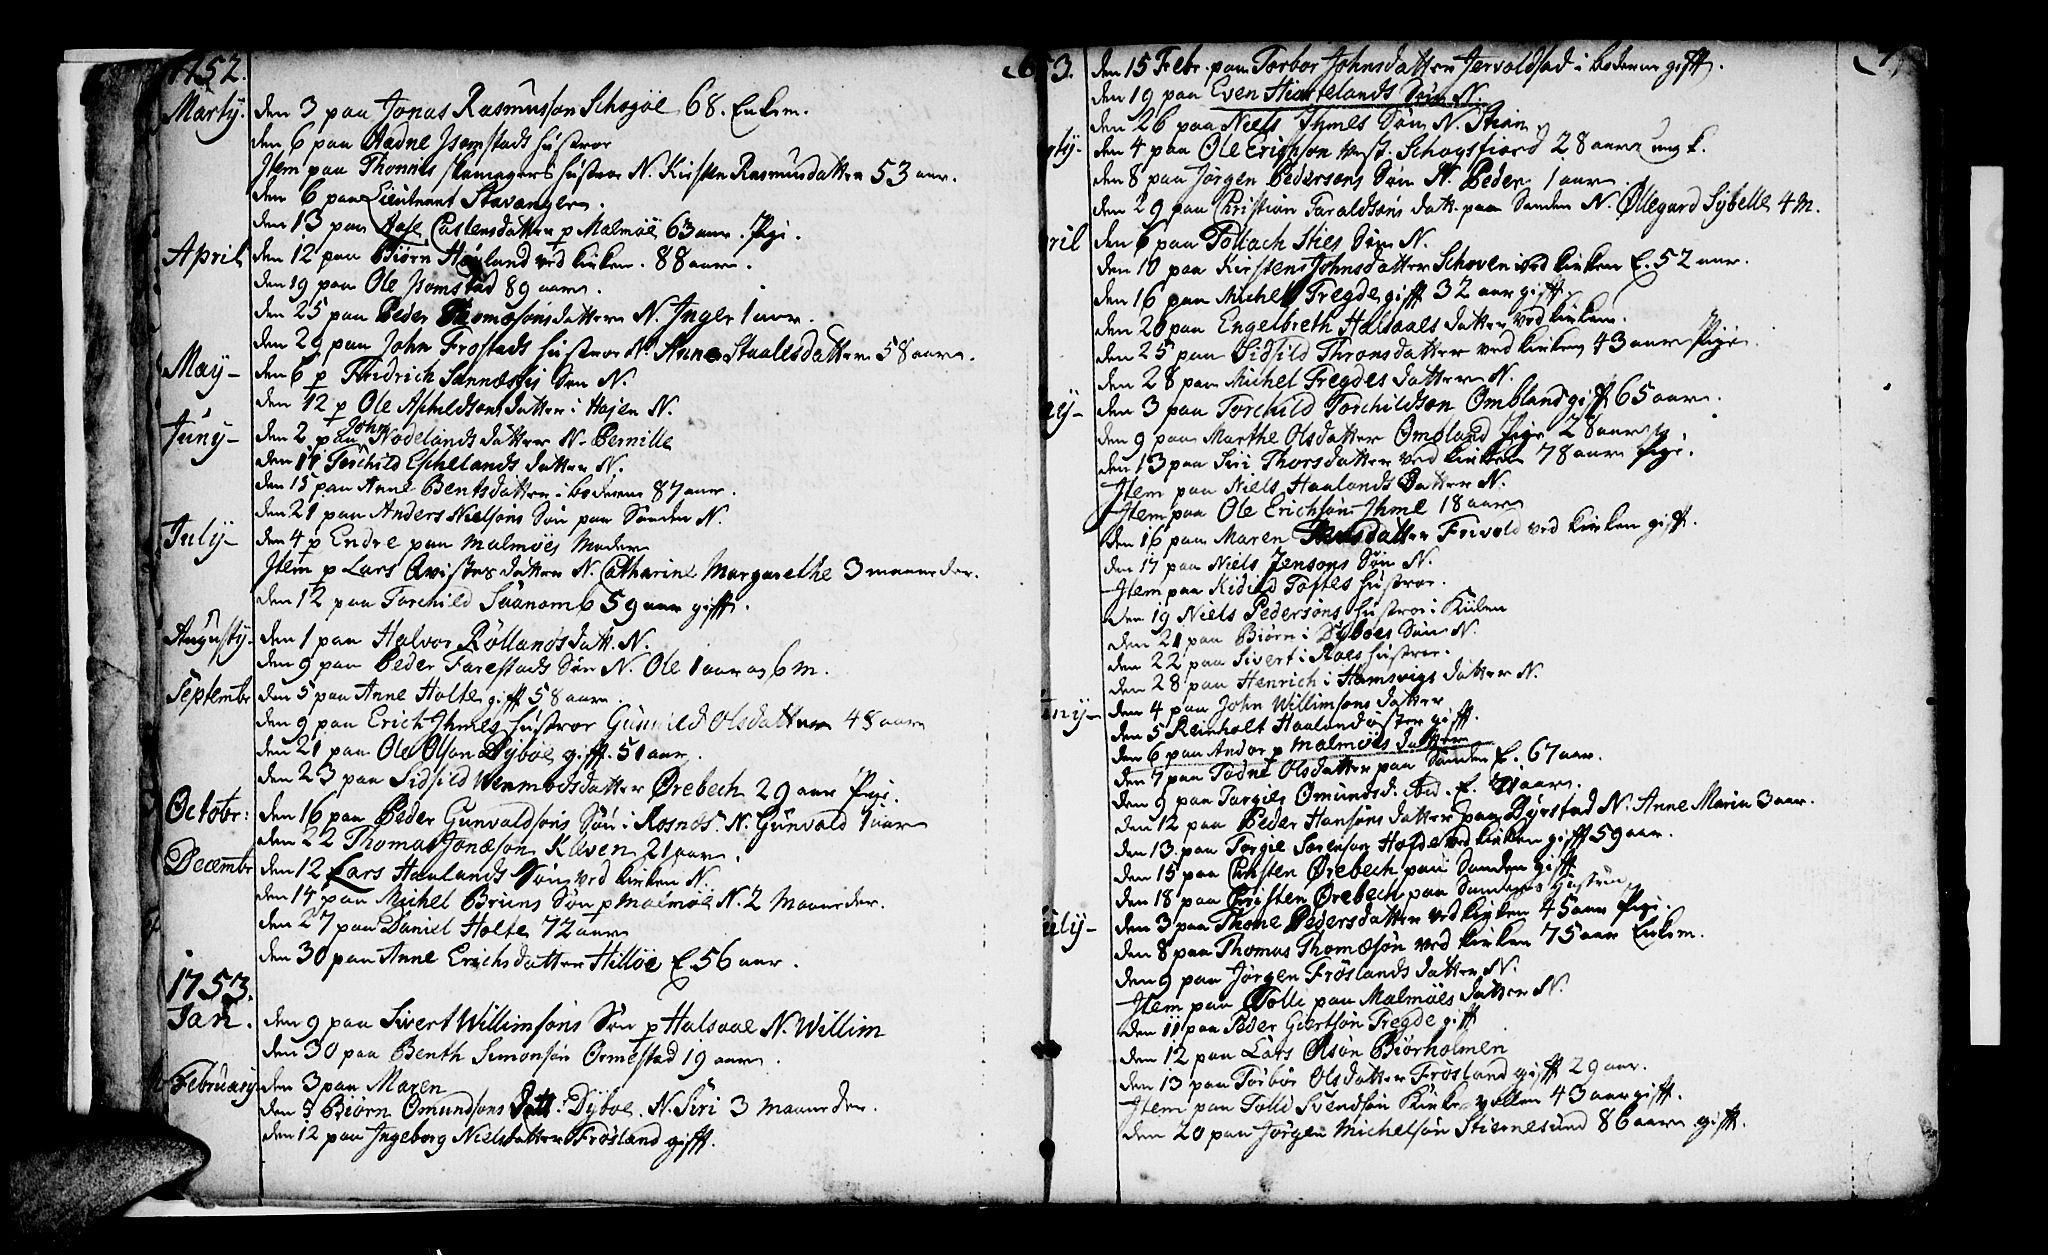 1752.
Marty. den 3 paa Jonas Rasmusson Schogöe 68. Enkem.
den 6 paa Aadne Isomstads hustroe
Item paa Thonnes skomagers hustroe N. Kirsten Rasmusdatter 53 aar.
den 6 paa Lieutenant Stavanger.
den 13 paa Aase Castensdatter p Malmöe 63 aar. Pige.
April den 12 paa Biörn Höyland ved kirken. 88 aar.
den 19 paa Ole Isomstad 89 aar.
den 25 paa Peder Thomæsöns datter N. Inger 1 aar.
den 29 paa John Frostads hustroe N. Anne Staalesdatter 58 aar.
May- den 6 p Fridrich Sannæssis Sön N.
den 12 p Ole Ashildsöns datter i Hajen N.
Juny- den 2 paa John Nödelands datter N. Pernille
den 11 Torchild Eschelands datter N.
den 15 paa Anne Bentsdatter i boderne 87 aar.
den 21 paa Anders Nielsöns Sön paa Sanden N.
July- den 4 p Endre paa Malmöes Moder
Item p Lars Qvistes datter N. Catharine Margarethe 3 maaneder.
den 12 paa Torchild Saanom 59 aar gifft.
Augusty. den 1 paa Halvor Röllands datt. N.
den 9 paa Peder Farestads Sön N. Ole 1 aar og 6 m.
Septembr den 5 paa Anne Holte gifft 58 aar.
den 9 paa Erich Ihmes hustroe Gunnild Olsdatter 48 aar
den 21 paa Ole Olson Dyboe gifft. 51 aar.
den 23 paa Sidsild Wenmodsdatter Örebech 29 aar Pige.
Octobr: den 16 paa Peder Gunvaldsöns Sön i Rosnæs N. Gunvald 1 aar
den 22 Thomas Jonæson Kaven 21 aar.
Decembr den 12 Lars Haalands Sön ved kirken N.
den 14 paa Michel Bruns Sön p Malmöe N. 2 Maaneder.
den 27 paa Daniel Holte 72 aar
den 30 paa Anne Erichsdatter Hilloe E. 56 aar.
1753.
Jan. den 9 paa Sivert Willimsöns Sön p Halsaae N. Willim
den 30 paa Benth Simonsön Ormestad 19 aar.
February den 3 paa Maren
den 5 Biörn Omundsöns datt. Dyboe. N. Siri 3 Maaneder.
den 12 paa Ingeborg Nielsdatter Frösland gifft.
53. den 15 Febr. paa Torbor Johnsdatter Jervoldstad i boderne gifft.
den 19 paa Even Hiortelands Sön N.
den 26 paa Niels Ihmes Sön N. Stian
den 4 paa Ole Erichson Schogsfiord 28 aar ung k.
den 8 paa Jörgen Pedersens Sön N. Peder 1 aar.
den 29 paa Christian Taraldsöns datt. paa Sanden N. Öllegard Sybelle 4 M.
ril den 6 paa Tollach Sties Sön N.
den 10 paa Kirsten Johnsdatter Schoven ved kirken E. 52 aar.
den 16 paa Michel Fregde gifft 32 aar gifft.
den 20 paa Engelbreth Halsaaes datter ved kirken.
den 25 paa Sidsild Thronsdatter ved kirken 43 aar Pige.
den 28 paa Michel Fregdes datter N.
ay- den 3 paa Torchild Torchildsön Ombland gifft 65 aar.
den 9 paa Marthe Olsdatter Omdland Pige 28 aar
den 13 paa Siri Thorsdatter ved kirken 78 aar Pige.
Item paa Niels Haalands Datter N.
Item paa Ole Erichsön Ihme 18 aar
den 16 paa Maren datter Frivold ved kirken gifft.
den 17 paa Niels Jensons Sön N.
Item paa Kidild Toftes hustroe.
den 19 Niels Pedersöns hustroe i Kiilen
den 21 paa Biörn i Dyboes Sön N.
den 22 paa Sivert i Raes hustroe.
den 28 paa Henrich i Hamsvigs datter N.
uny- den 4 paa John Willimsöns datter
den 5 Reinholt Haaland öster gifft.
den 6 paa Andor p Malmöes datter
den 7 paa Todne Olsdatter paa Sanden E. 67 aar.
den 9 paa Targies Omundsd. ibid. E. 71 aar.
den 12 paa Peder Hansöns datter paa Dyrstad N. Anne Maria 3 aar.
den 13 paa Torgie Sörenson Hofde ved kirken gifft 59 aar.
den 15 paa Christen Örebech paa Sanden gifft
den 18 paa Christen Örebech paa Sandens hustroe
uly- den 3 paa Thone Pedersdatter ved kirken 45 aar Pige.
den 8 paa Thomas Thomæsön ved kirken 75 aar Enkem.
den 9 paa Jörgen Fröslands datter N.
Item paa Tolle paa Malmöes datter N.
den 11 paa Peder Giertsön Fregde gifft
den 12 paa Lars Olsön Biörholmen
den 13 paa Torbör Olsdatter Frösland gifft 29 aar.
Item paa Tolle Svendsön Kirkevollen 43 aar gifft.
den 20 paa Jörgen Michelsön Stiernesund 86 aar gifft.